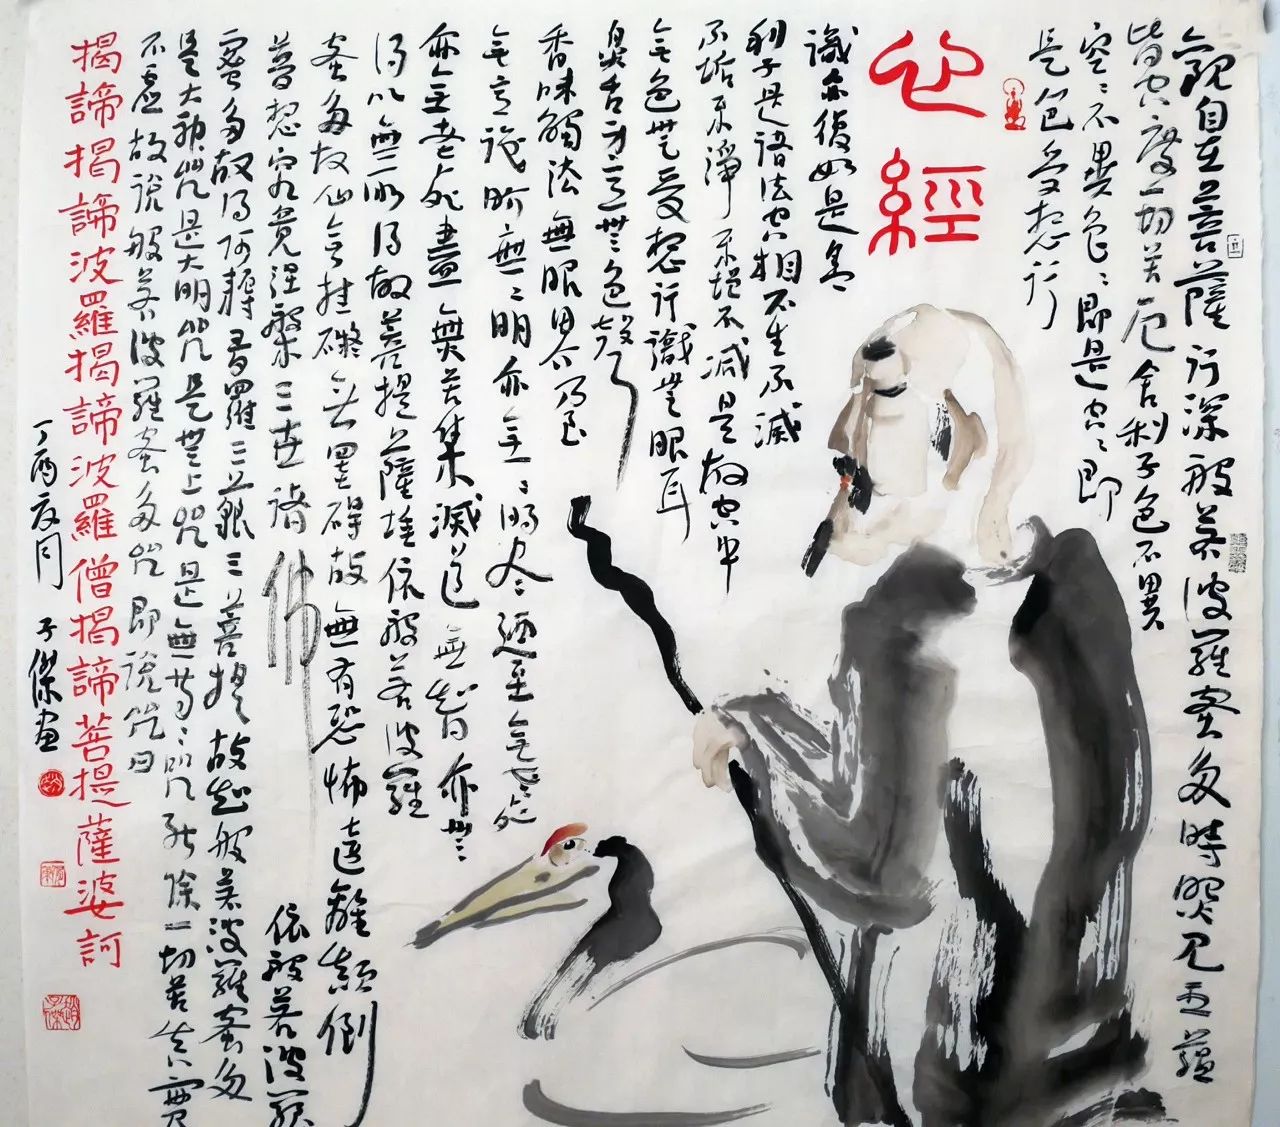 觀自在菩薩行深般若波羅蜜多時照見五蘊
皆空度一切苦厄舍利子色不異
空〻不異色〻即是空〻即
是色受想行
心經
識亦復如是舍
利子是諸法空相不生不滅
不垢不淨不增不減是故空中
無色無受想行識無眼耳
鼻舌身意無色聲
香味觸法無眼界乃至
無意識界無〻明亦無〻明盡迺至無老死
亦無老死盡無苦集滅道無智亦無
得以無所得故菩提薩埵依般若波羅
蜜多故心無挂礙無罣礙故無有恐怖遠離顛倒
夢想究竟涅槃三世諸佛依般若波羅
蜜多故得阿耨多羅三藐三菩提故知般若波羅蜜多
是大神咒是大明咒是無上咒是無等〻咒能除一切苦真實
不虛故說般若波羅蜜多咒即說咒曰
揭諦揭諦波羅揭諦波羅僧揭諦菩提薩婆訶
丁酉夏月子傑畫